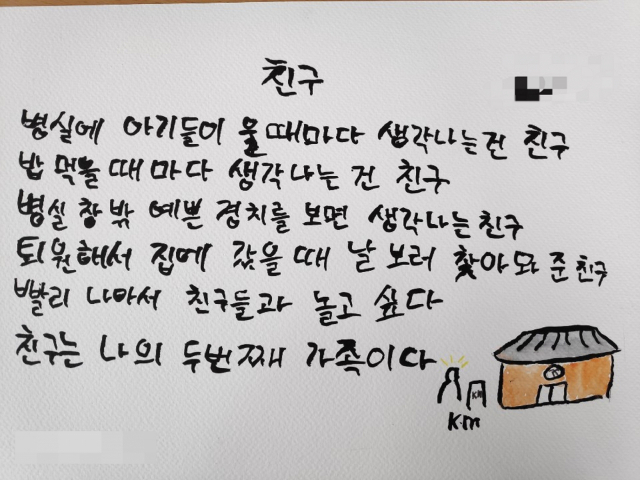 친구
병실에 아기들이 울 때마다 생각나는 건 친구
밥 먹을 때마다 생각나는 건 친구
병실 창밖 예쁜 경치를 보면 생각나는 친구
퇴원해서 집에 갔을 때 날 보러 찾아와 준 친구
빨리 나아서 친구들과 놀고 싶다
친구는 나의 두번째 가족이다
KM
K.M